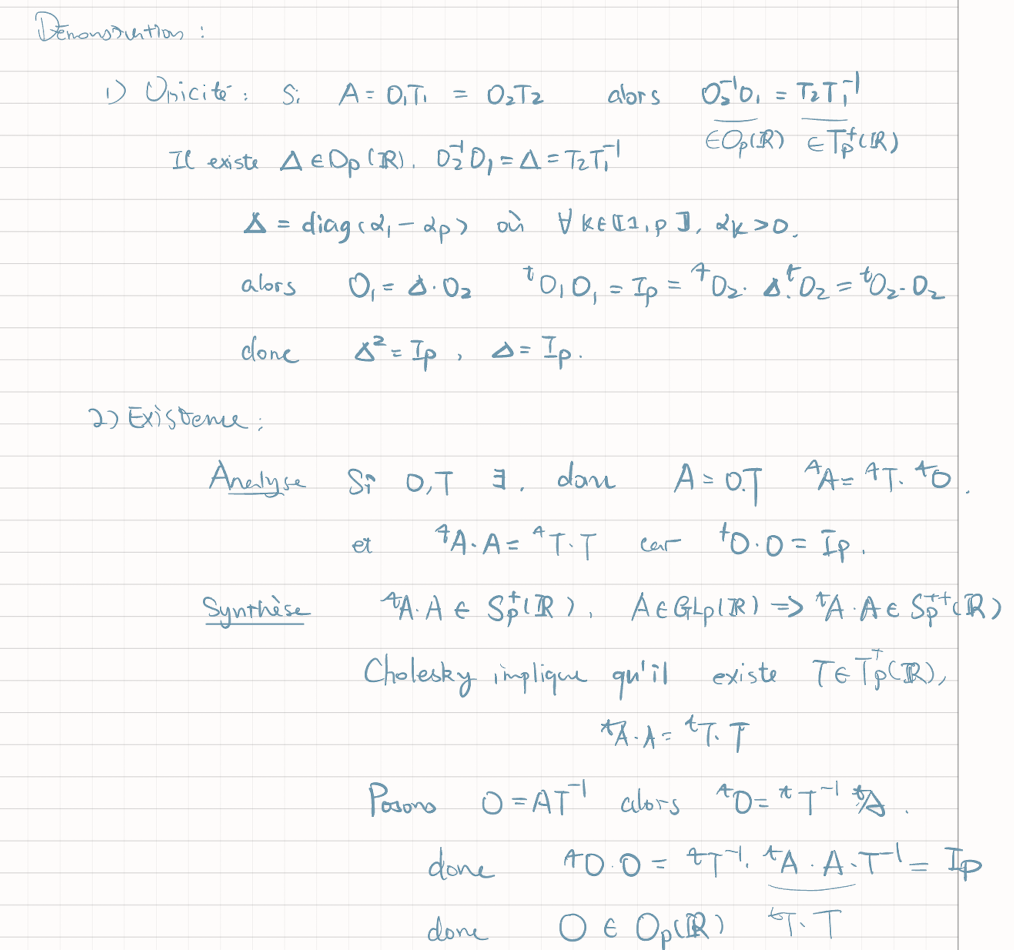 Démonstration :
1) Unicité : Si A = O₁T₁ = O₂T₂ alors O₂⁻¹O₁ = T₂T₁⁻¹
∈Op(ℝ) ∈Tp⁺(ℝ)
Il existe Δ ∈ Dp(ℝ), O₂⁻¹O₁ = Δ = T₂T₁⁻¹
Δ = diag(α₁ – αp) où ∀ k∈⟦1,p⟧, αk > 0.
alors O₁ = Δ·O₂ ᵗO₁O₁ = Ip = ᵗO₂· Δ·ᵗO₂ = ᵗO₂·O₂
donc Δ² = Ip , Δ = Ip.
2) Existence :
Analyse Si O,T ∃, donc A = O.T ᵗA = ᵗT·ᵗO.
et ᵗA·A = ᵗT·T car ᵗO·O = Ip.
Synthèse ᵗA·A ∈ Sp⁺(ℝ), A∈GLp(ℝ) => ᵗA·A ∈ Sp⁺⁺(ℝ)
Cholesky implique qu'il existe T∈Tp⁺(ℝ),
ᵗA·A = ᵗT·T
Posons O = AT⁻¹ alors ᵗO = ᵗT⁻¹ ᵗA.
donc ᵗO·O = ᵗT⁻¹·ᵗA·A·T⁻¹ = Ip
donc O ∈ Op(ℝ) ᵗT·T